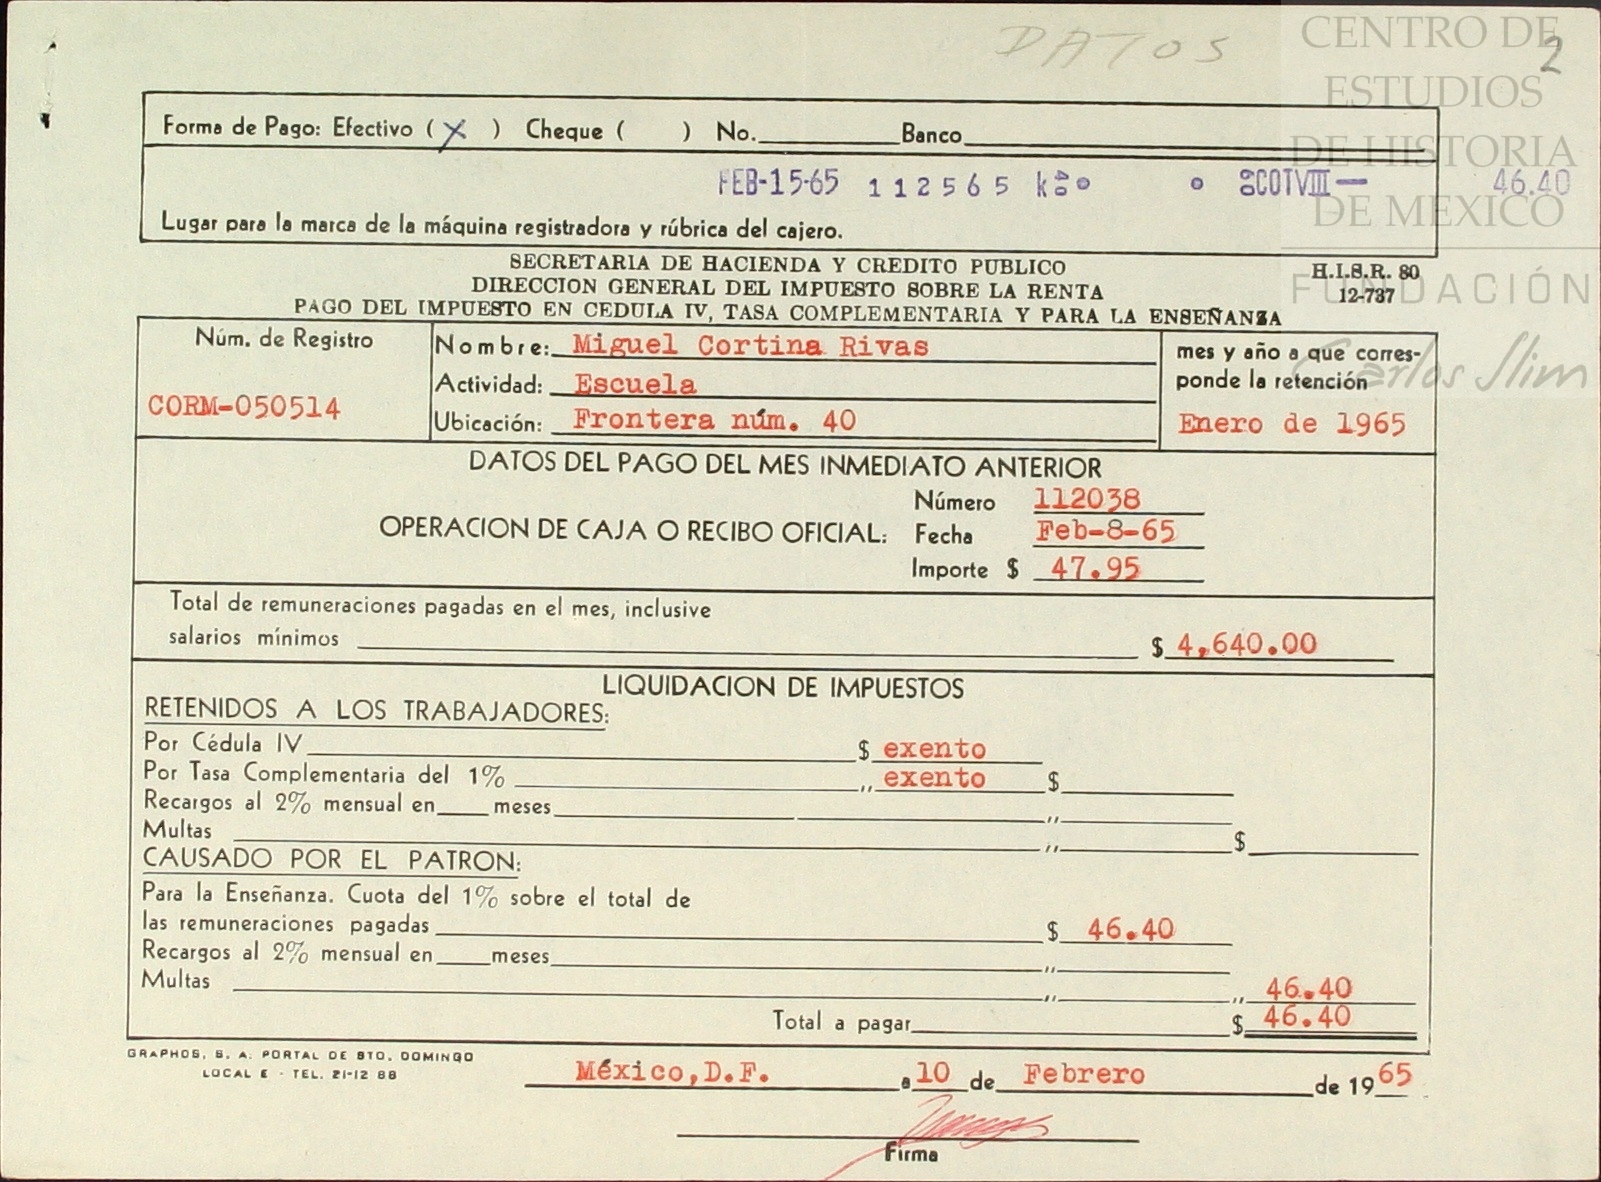 DATOS
2
CENTRO DE
ESTUDIOS
DE HISTORIA
DE MEXICO
FUNDACIÓN
Carlos Slim
Forma de Pago: Efectivo ( X ) Cheque ( ) No.________ Banco________
FEB-15-65 112565 SCOTVIII— 46.40
Lugar para la marca de la máquina registradora y rúbrica del cajero.
SECRETARIA DE HACIENDA Y CREDITO PUBLICO
H.I.S.R. 80
DIRECCION GENERAL DEL IMPUESTO SOBRE LA RENTA
12-737
PAGO DEL IMPUESTO EN CEDULA IV, TASA COMPLEMENTARIA Y PARA LA ENSEÑANZA
Núm. de Registro
CORM-050514
Nombre: Miguel Cortina Rivas
Actividad: Escuela
Ubicación: Frontera núm. 40
mes y año a que corres-
ponde la retención
Enero de 1965
DATOS DEL PAGO DEL MES INMEDIATO ANTERIOR
OPERACION DE CAJA O RECIBO OFICIAL:
Número 112038
Fecha Feb-8-65
Importe $ 47.95
Total de remuneraciones pagadas en el mes, inclusive
salarios mínimos $ 4,640.00
LIQUIDACION DE IMPUESTOS
RETENIDOS A LOS TRABAJADORES:
Por Cédula IV $ exento
Por Tasa Complementaria del 1% ,, exento $
Recargos al 2% mensual en____ meses ,,
Multas ,, $
CAUSADO POR EL PATRON:
Para la Enseñanza. Cuota del 1% sobre el total de
las remuneraciones pagadas $ 46.40
Recargos al 2% mensual en____meses ,,
Multas ,, ,, 46.40
Total a pagar $ 46.40
GRAPHOS, S. A. PORTAL DE STO. DOMINGO
LOCAL E - TEL. 21-12 88
México, D.F. a 10 de Febrero de 1965
Firma